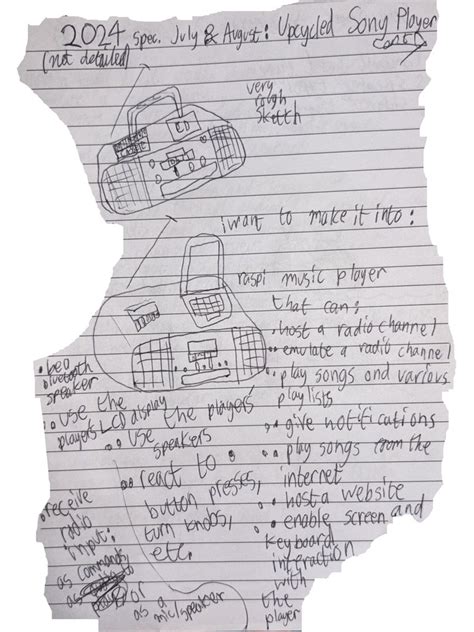 2024 spec. July & August: Upcycled Sony Player
(not detailed)
very
rough
sketch
CD
i want to make it into:
raspi music player
that can:
• host a radio channel
• emulate a radio channel
• play songs and various
playlists
• give notifications
• play songs from the
internet
• host a website
• enable screen and
keyboard
interaction
with
the
player
• be a
bluetooth
speaker
• use the
players LCD display
• use the players'
speakers
• react to
button presses,
turn knobs,
etc.
• receive
radio
input:
as commands
or
as a
mic/speaker